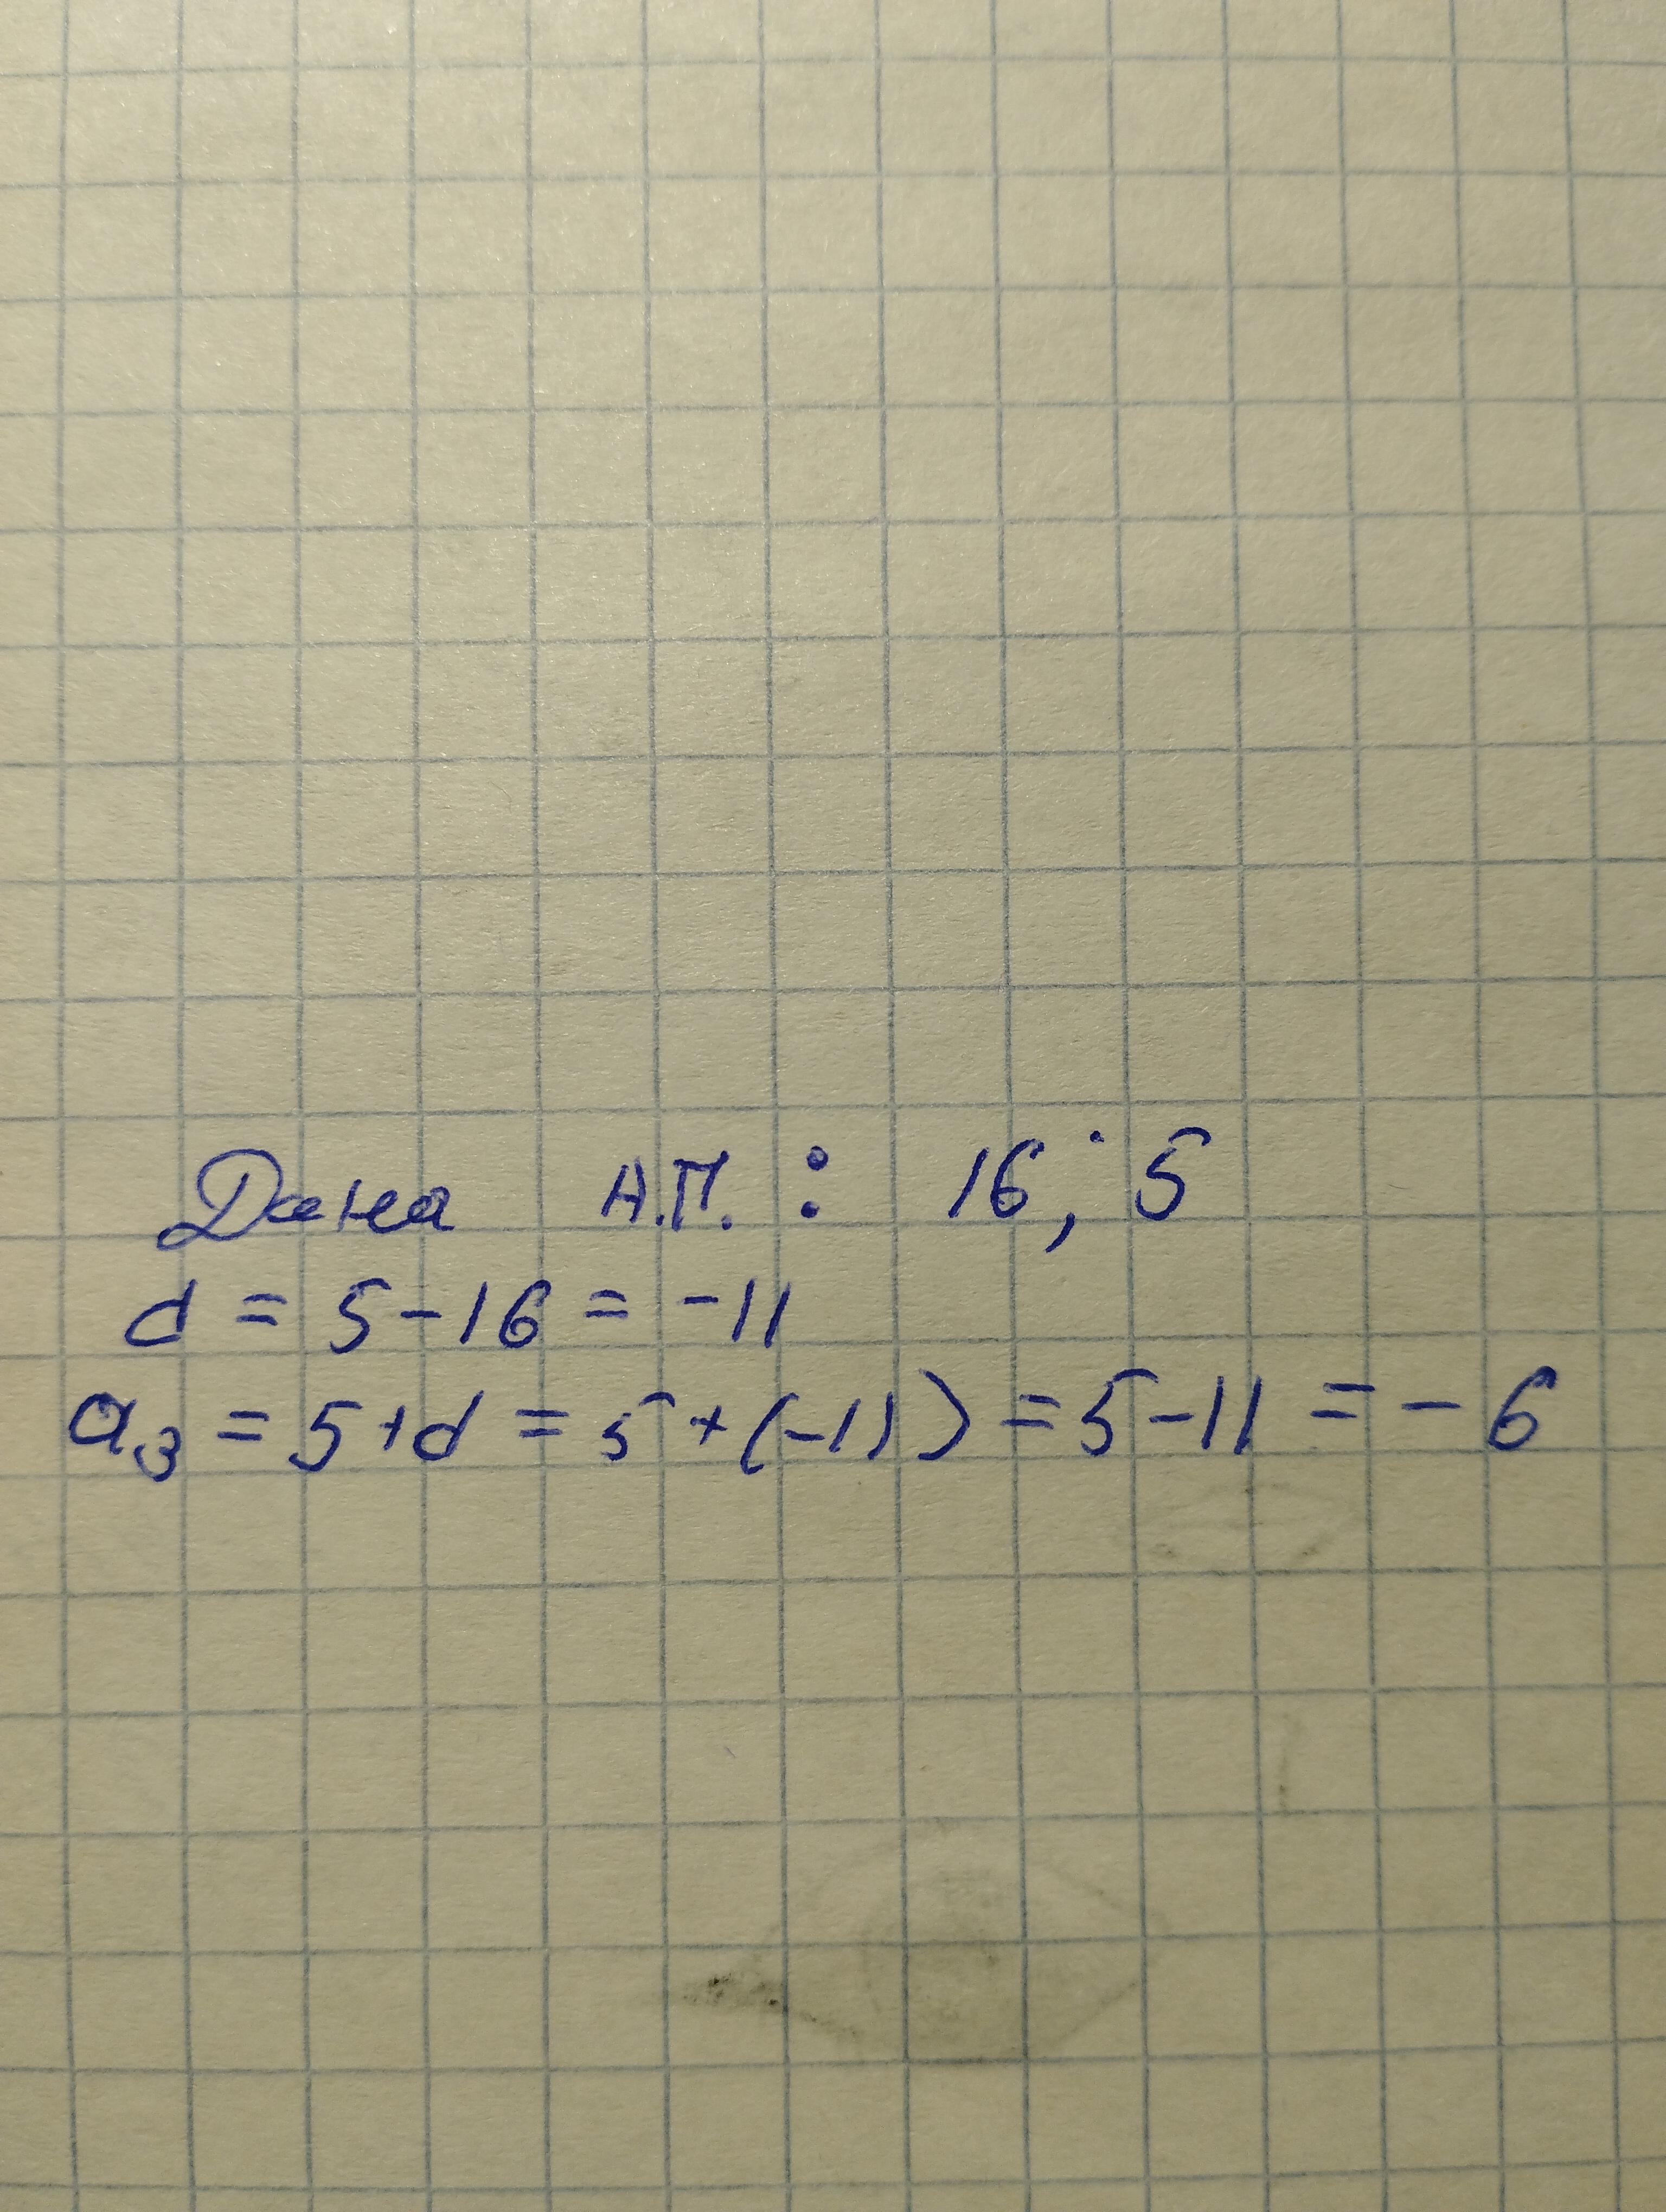 Дана А.П. : 16; 5
d = 5-16 = -11
a₃ = 5+d = 5+(-11) = 5-11 = -6